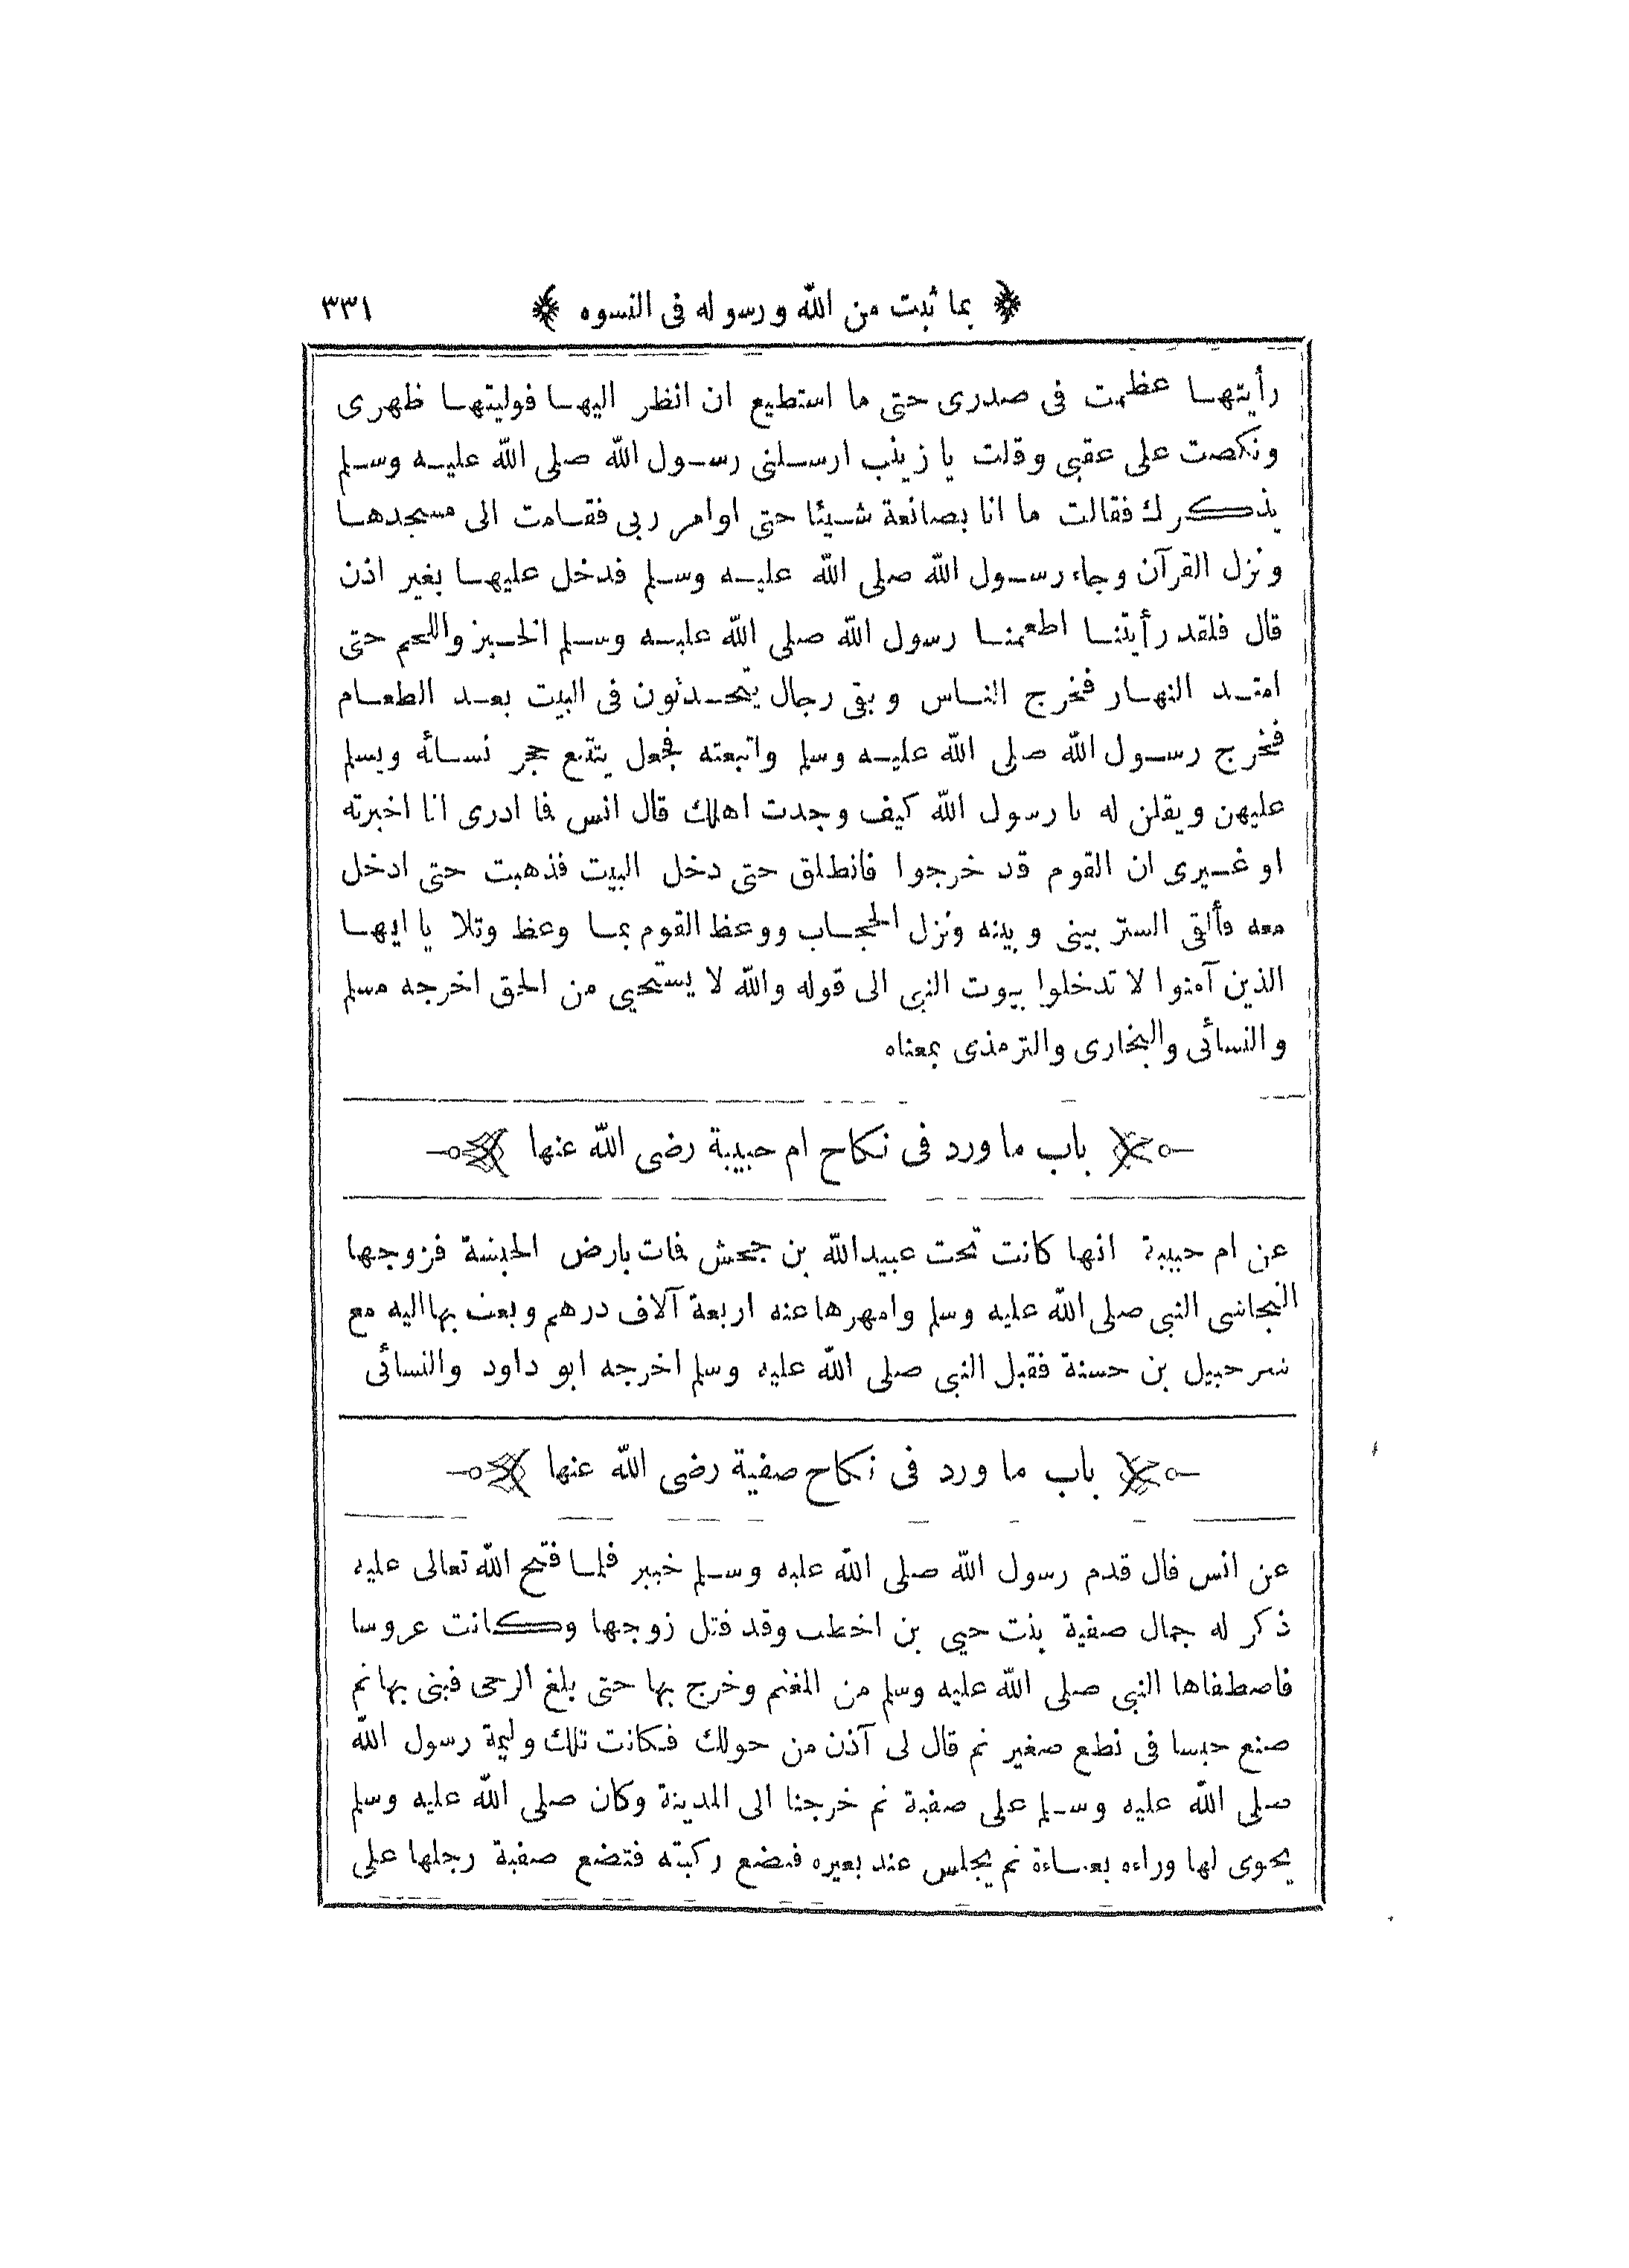 ﴿ بما ثبت من الله ورسوله فى النسوه ﴾ ٣٣١
رأيتها عظمت فى صدرى حتى ما استطيع ان انظر اليها فوليتها ظهرى
ونكصت على عقبى وقلت يا زينب ارسلنى رسول الله صلى الله عليه وسلم
يذكرك فقالت ما انا بصانعة شيئا حتى اوامر ربى فقامت الى مسجدها
ونزل القرآن وجاء رسول الله صلى الله عليه وسلم فدخل عليها بغير اذن
قال فلقد رأيتنا اطعمنا رسول الله صلى الله عليه وسلم الخبز واللحم حتى
امتد النهار فخرج الناس وبقى رجال يتحدثون فى البيت بعد الطعام
فخرج رسول الله صلى الله عليه وسلم واتبعته فجعل يتتبع حجر نسائه ويسلم
عليهن ويقلن له يا رسول الله كيف وجدت اهلك قال انس فما ادرى انا اخبرته
او غيرى ان القوم قد خرجوا فانطلق حتى دخل البيت فذهبت حتى ادخل
معه فألقى الستر بينى وبينه ونزل الحجاب ووعظ القوم بما وعظ وتلا يا ايها
الذين آمنوا لا تدخلوا بيوت النبى الى قوله والله لا يستحيي من الحق اخرجه مسلم
والنسائى والبخارى والترمذى بمعناه
باب ما ورد فى نكاح ام حبيبة رضى الله عنها
عن ام حبيبة انها كانت تحت عبيدالله بن جحش فمات بارض الحبشة فزوجها
النجاشى النبى صلى الله عليه وسلم وامهرها عنه اربعة آلاف درهم وبعث بها اليه مع
شرحبيل بن حسنة فقبل النبى صلى الله عليه وسلم اخرجه ابو داود والنسائى
باب ما ورد فى نكاح صفية رضى الله عنها
عن انس قال قدم رسول الله صلى الله عليه وسلم خيبر فلما فتح الله تعالى عليه
ذكر له جمال صفية بنت حيي بن اخطب وقد قتل زوجها وكانت عروسا
فاصطفاها النبى صلى الله عليه وسلم من المغنم وخرج بها حتى بلغ الرحى فبنى بها ثم
صنع حيسا فى نطع صغير ثم قال لى آذن من حولك فكانت تلك وليمة رسول الله
صلى الله عليه وسلم على صفية ثم خرجنا الى المدينة وكان صلى الله عليه وسلم
يحوى لها وراءه بعباءة ثم يجلس عند بعيره فيضع ركبته فتضع صفية رجلها على